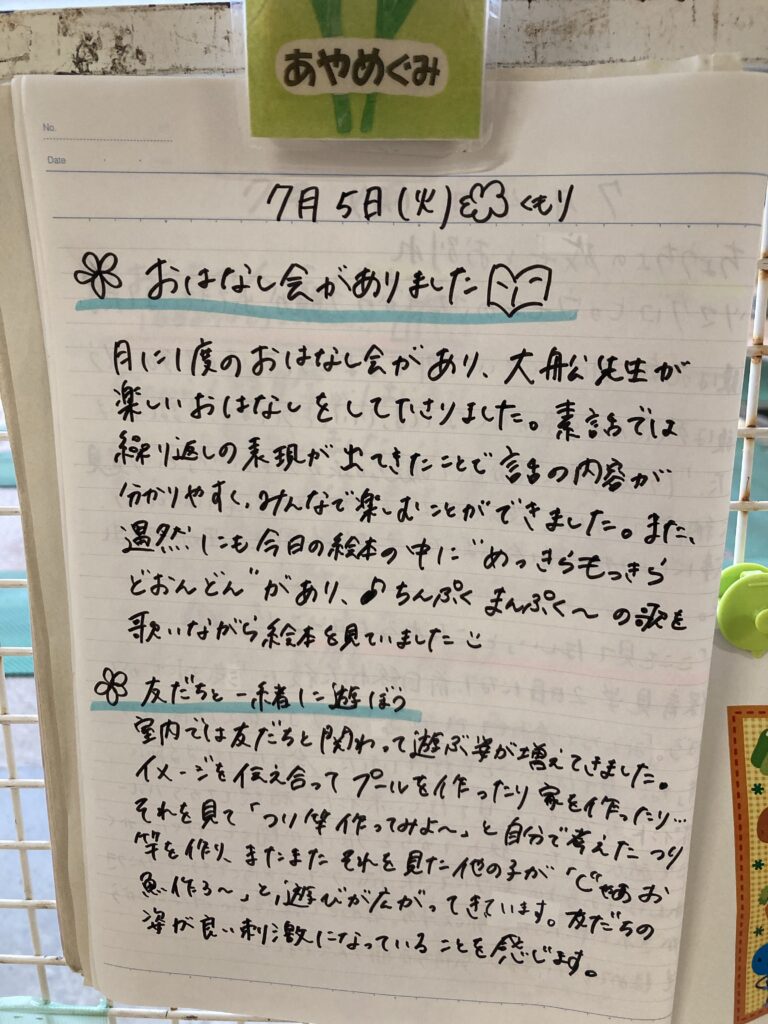 あやめぐみ
No.
Date
7月5日(火) くもり
おはなし会がありました
月に1度のおはなし会があり、大船先生が
楽しいおはなしをしてださりました。素話では
繰り返しの表現が出てきたことで話の内容が
分かりやすく、みんなで楽しむことができました。また、
遇然にも今日の絵本の中に"めっきらもっきら
どおんどん"があり、♪ちんぷく まんぷく〜の歌を
歌いながら絵本を見ていました
友だちと一緒に遊ぼう
室内では友だちと関わって遊ぶ姿が増えてきました。
イメージを伝え合ってプールを作ったり家を作ったり…
それを見て「つり竿作ってみよ〜」と自分で考えたつり
竿を作り、またまたそれを見た他の子が「じゃあお
魚作ろ〜」と、遊びが広がってきています。友だちの
姿が良い刺激になっていることを感じます。